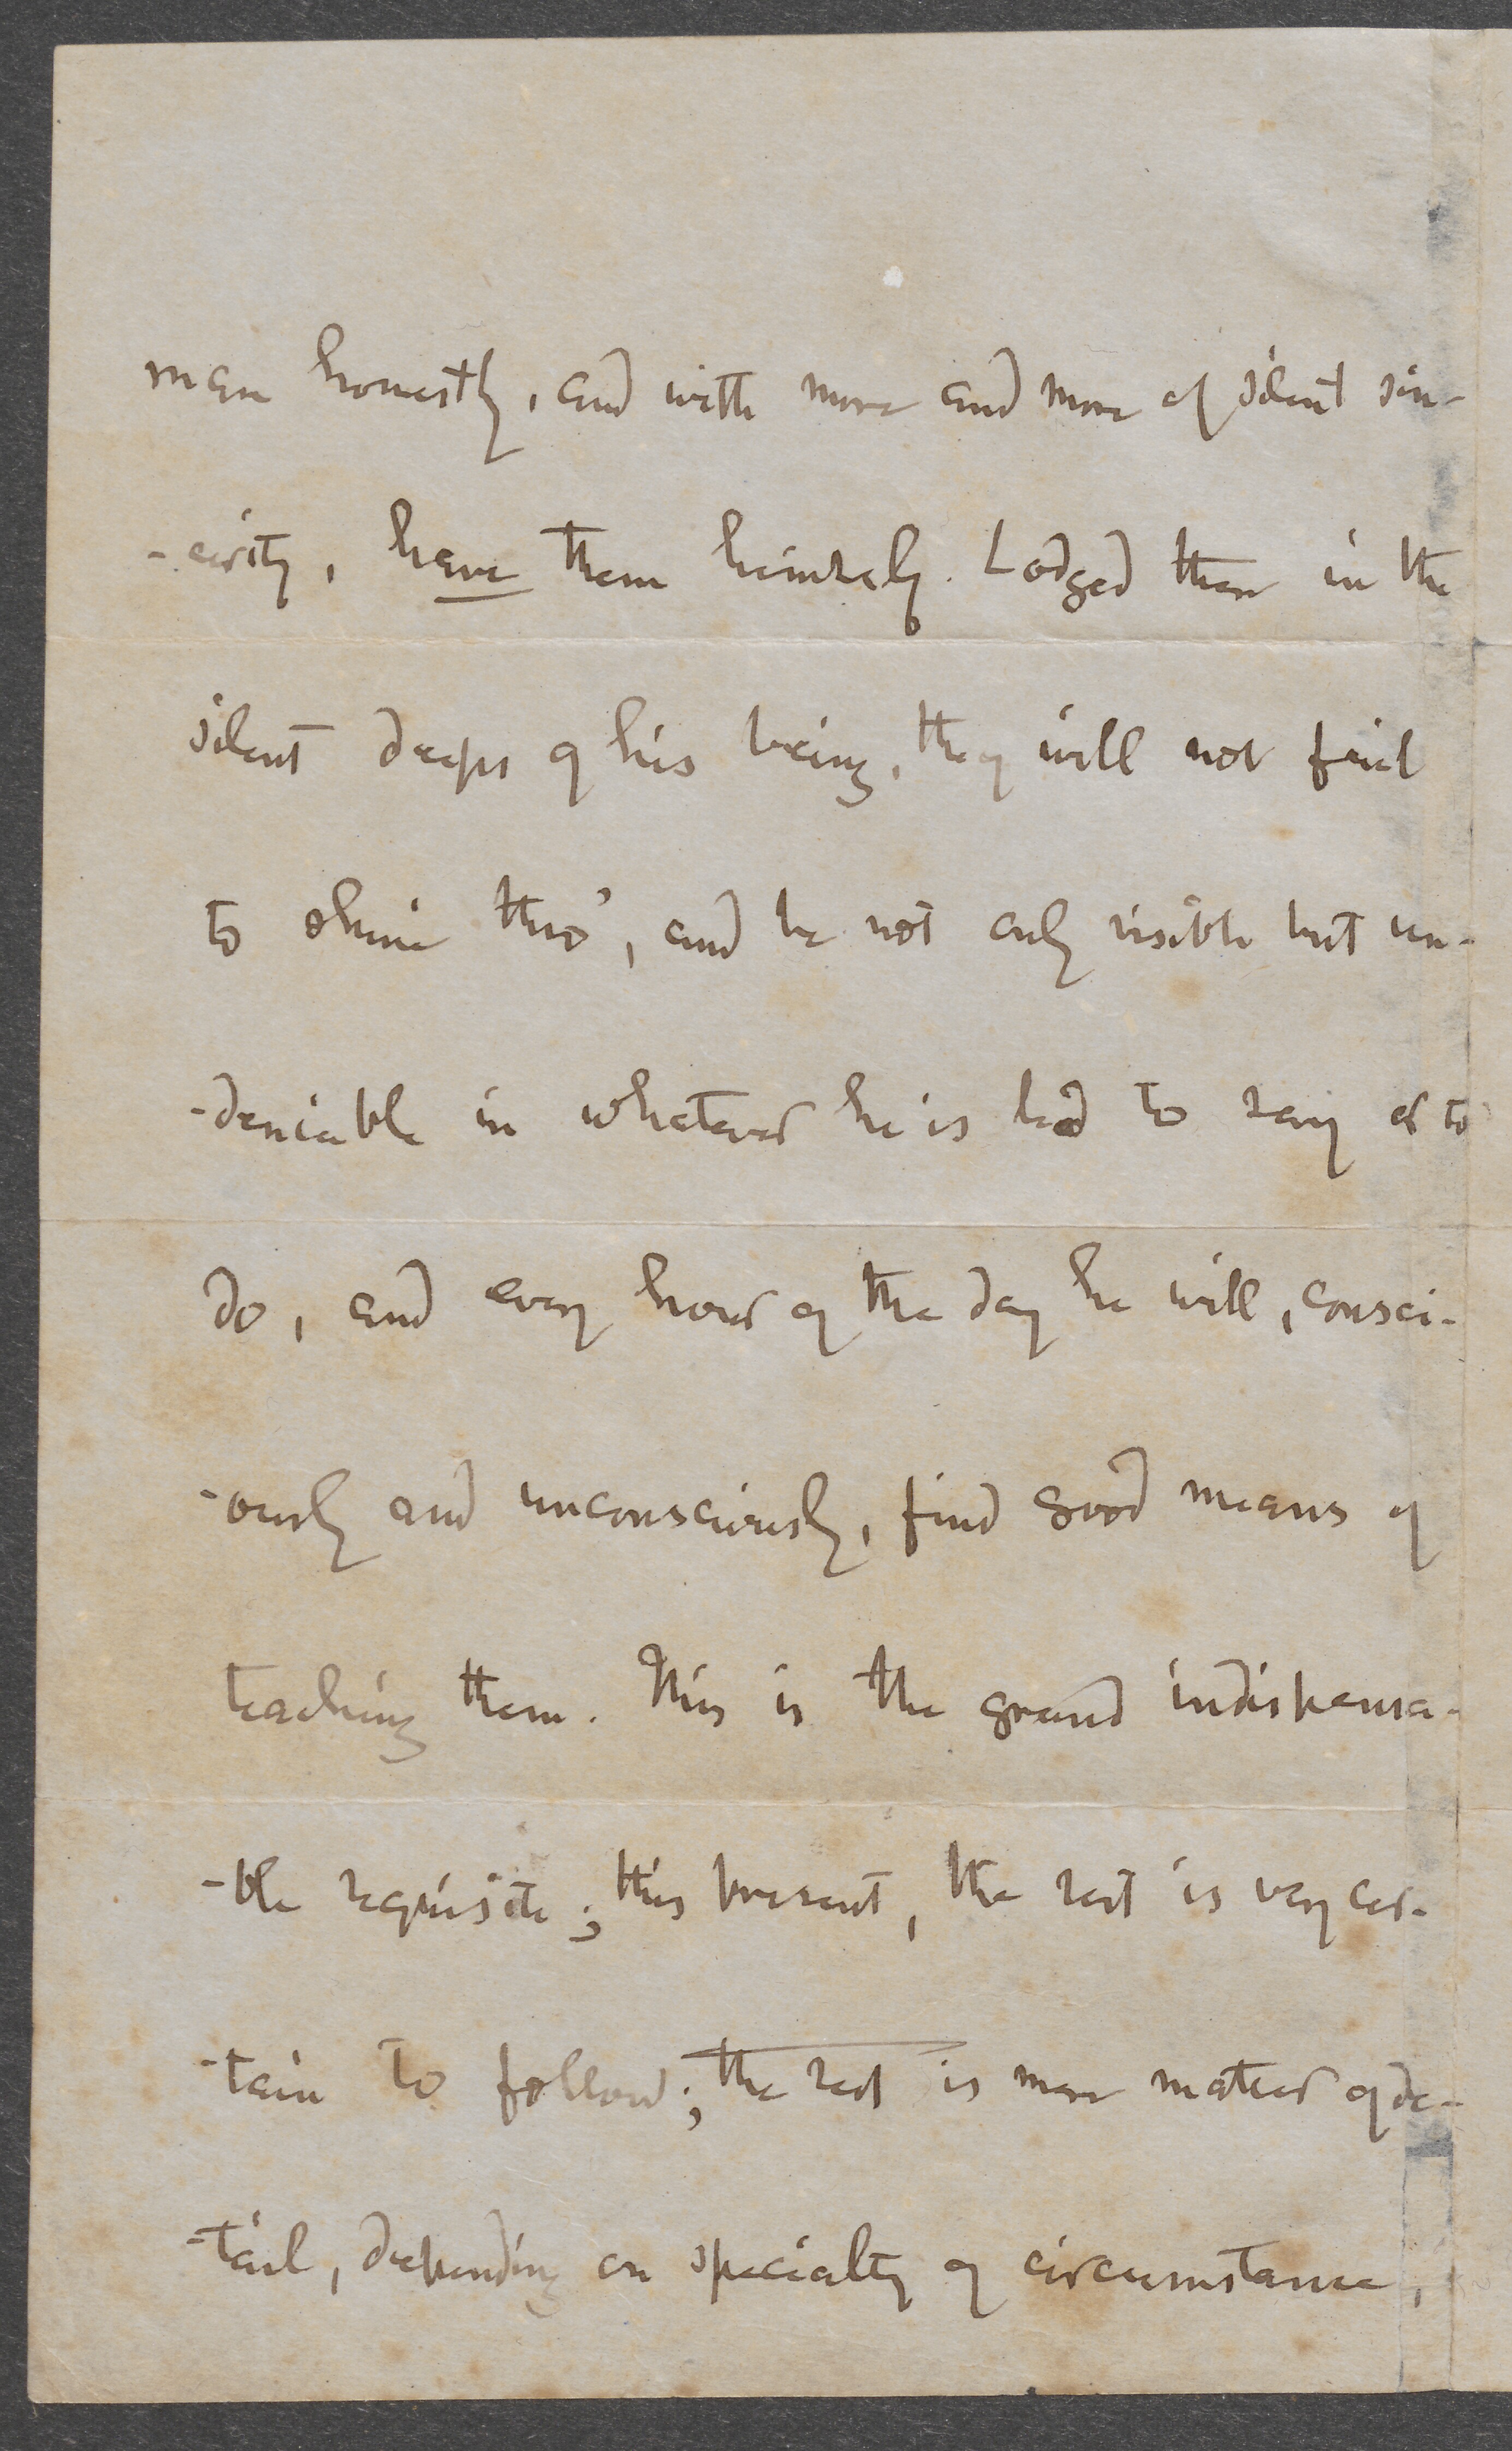 man honestly, and with more and more of silent sin-
-cerity, have them himself. Lodged there in the
silent deeps of his being, they will not fail
to shine thro', and be not only visible but un-
-deniable in whatever he is led to say or to
do, and every hour of the day he will, consci-
-ously and unconsciously, find good means of
teaching them. This is the grand indispensa-
-ble requisite; this present, the rest is very cer-
-tain to follow; the rest is mere matter of de-
-tail, depending on specialty of circumstance,